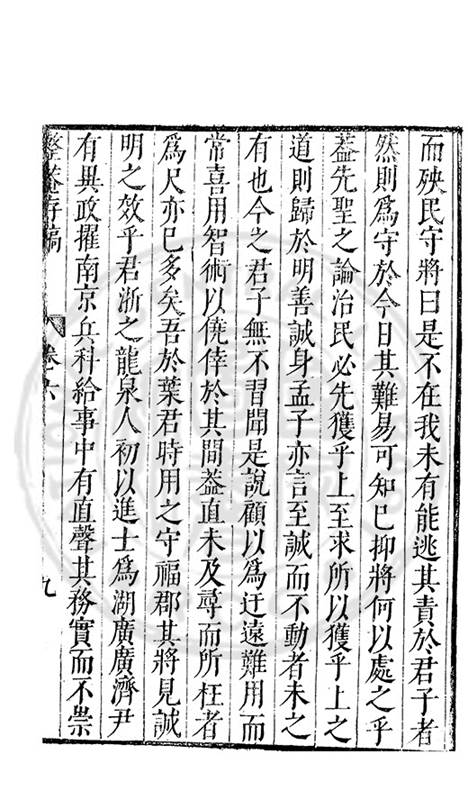 而殃民守將曰是不在我未有能逃其責於君子者
然則爲守於今日其難易可知已抑將何以處之乎
葢先聖之論治民必先獲乎上至求所以獲乎上之
道則歸於明善誠身孟子亦言至誠而不動者未之
有也今之君子無不習聞是說顧以爲迂遠難用而
常喜用智術以僥倖於其間葢直未及尋而所枉者
爲尺亦已多矣吾於葉君時用之守福郡其將見誠
明之效乎君浙之龍泉人初以進士爲湖廣廣濟尹
有異政擢南京兵科給事中有直聲其務實而不崇
整菴存稿 卷六 九